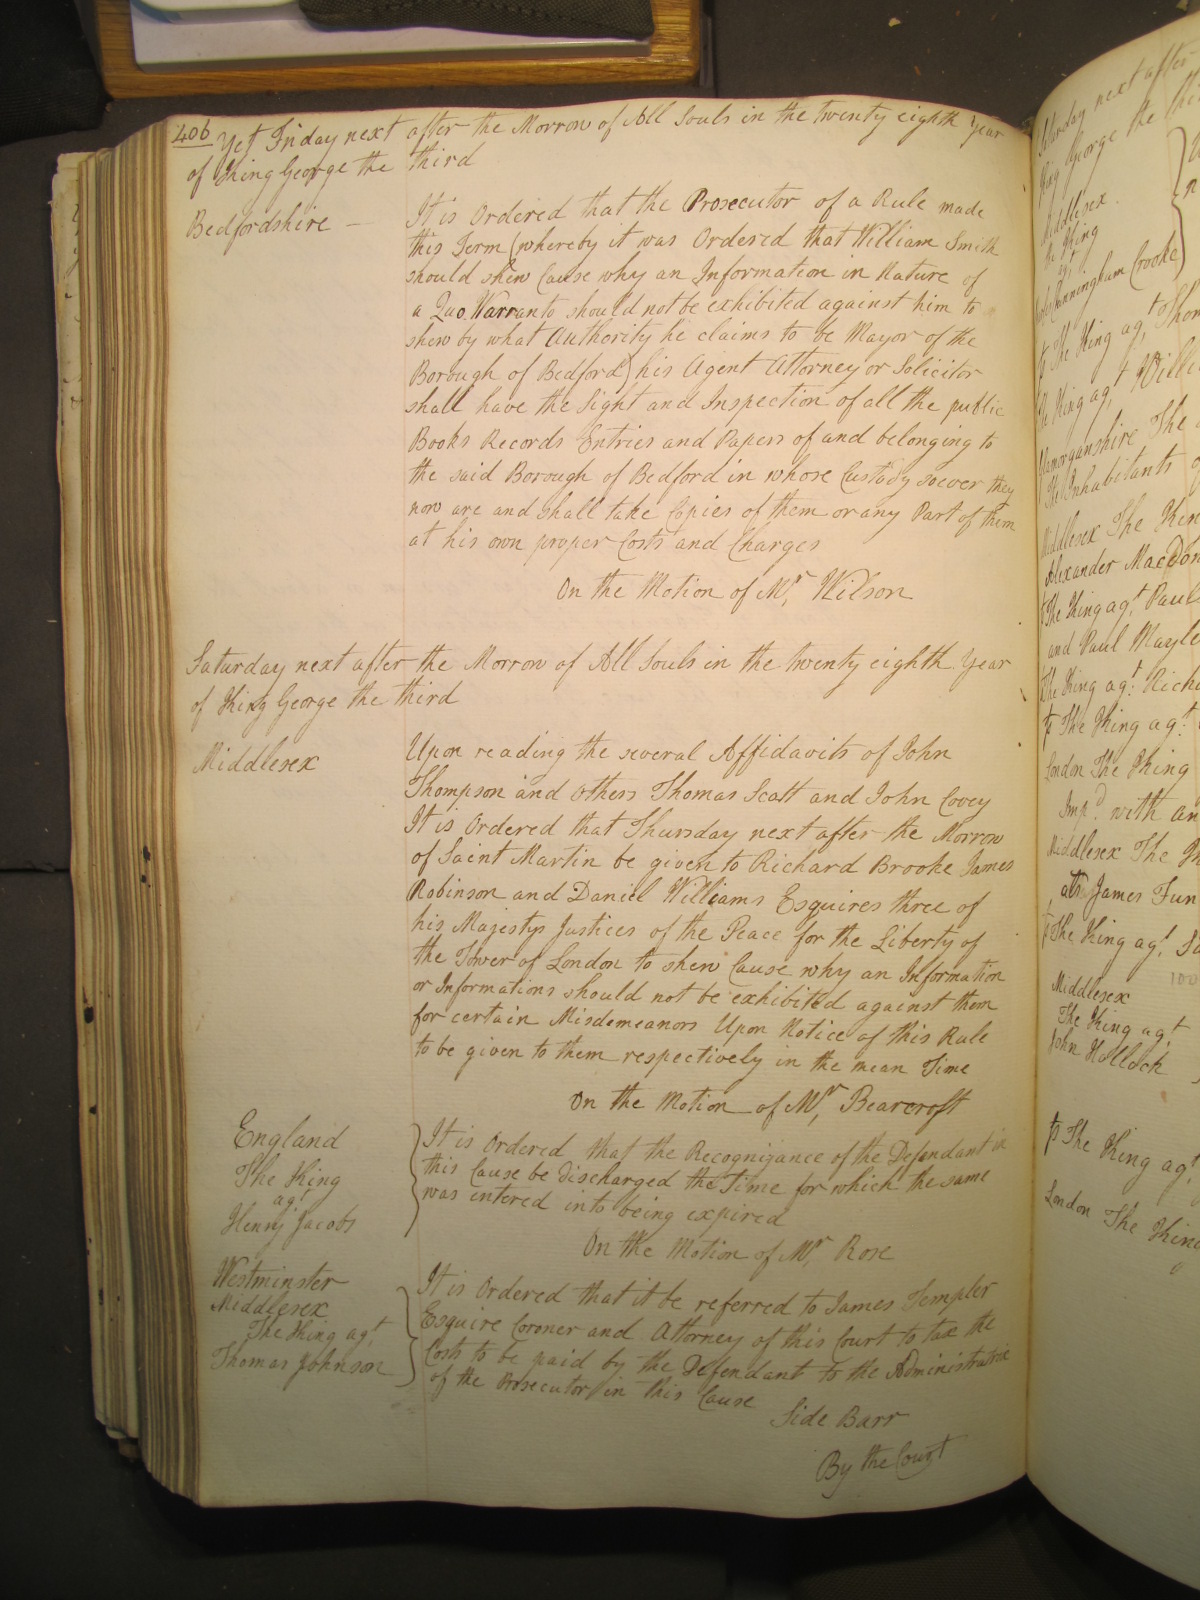 406 Yet Friday next after the Morrow of All Souls in the twenty eighth Year
of King George the third
Bedfordshire —
It is Ordered that the Prosecutor of a Rule made
this Term (whereby it was Ordered that William Smith
should shew Cause why an Information in Nature of
a Quo Warranto should not be exhibited against him to
shew by what Authority he claims to be Mayor of the
Borough of Bedford) his Agent Attorney or Solicitor
shall have the Sight and Inspection of all the public
Books Records Entries and Papers of and belonging to
the said Borough of Bedford in whose Custody soever they
now are and shall take Copies of them or any Part of them
at his own proper Costs and Charges
On the Motion of Mr. Wilson
Saturday next after the Morrow of All Souls in the twenty eighth Year
of King George the third
Middlesex
Upon reading the several Affidavits of John
Thompson and others Thomas Scatt and John Covey
It is Ordered that Thursday next after the Morrow
of Saint Martin be given to Richard Brooke James
Robinson and Daniel Williams Esquires three of
his Majestys Justices of the Peace for the Liberty of
the Tower of London to shew Cause why an Information
or Informations should not be exhibited against them
for certain Misdemeanors Upon Notice of this Rule
to be given to them respectively in the mean Time
On the Motion of Mr. Bearcroft
England
The King
agt.
Henry Jacobs
It is Ordered that the Recognizance of the Defendant in
this Cause be discharged the Time for which the same
was entered into being expired
On the Motion of Mr. Rose
Westminster
Middlesex
The King agt.
Thomas Johnson
It is Ordered that it be referred to James Templer
Esquire Coroner and Attorney of this Court to tax the
Costs to be paid by the Defendant to the Administratrix
of the Prosecutor in this Cause
Side Barr
By the Court
Saturday next after
King George the thi
Middlesex
The King
agt.
Cunningham Crooke
The King agt. Thom
The King agt. Willi
Glamorganshire The
The Inhabitants
Middlesex The Kin
Alexander MacDon
The King agt. Paul
and Paul Mayle
The King agt. Rich
The King agt.
London The King
Impd. with an
Middlesex The
James Fun
The King agt.
Middlesex
The King agt
John Hollock
The King agt
London The King